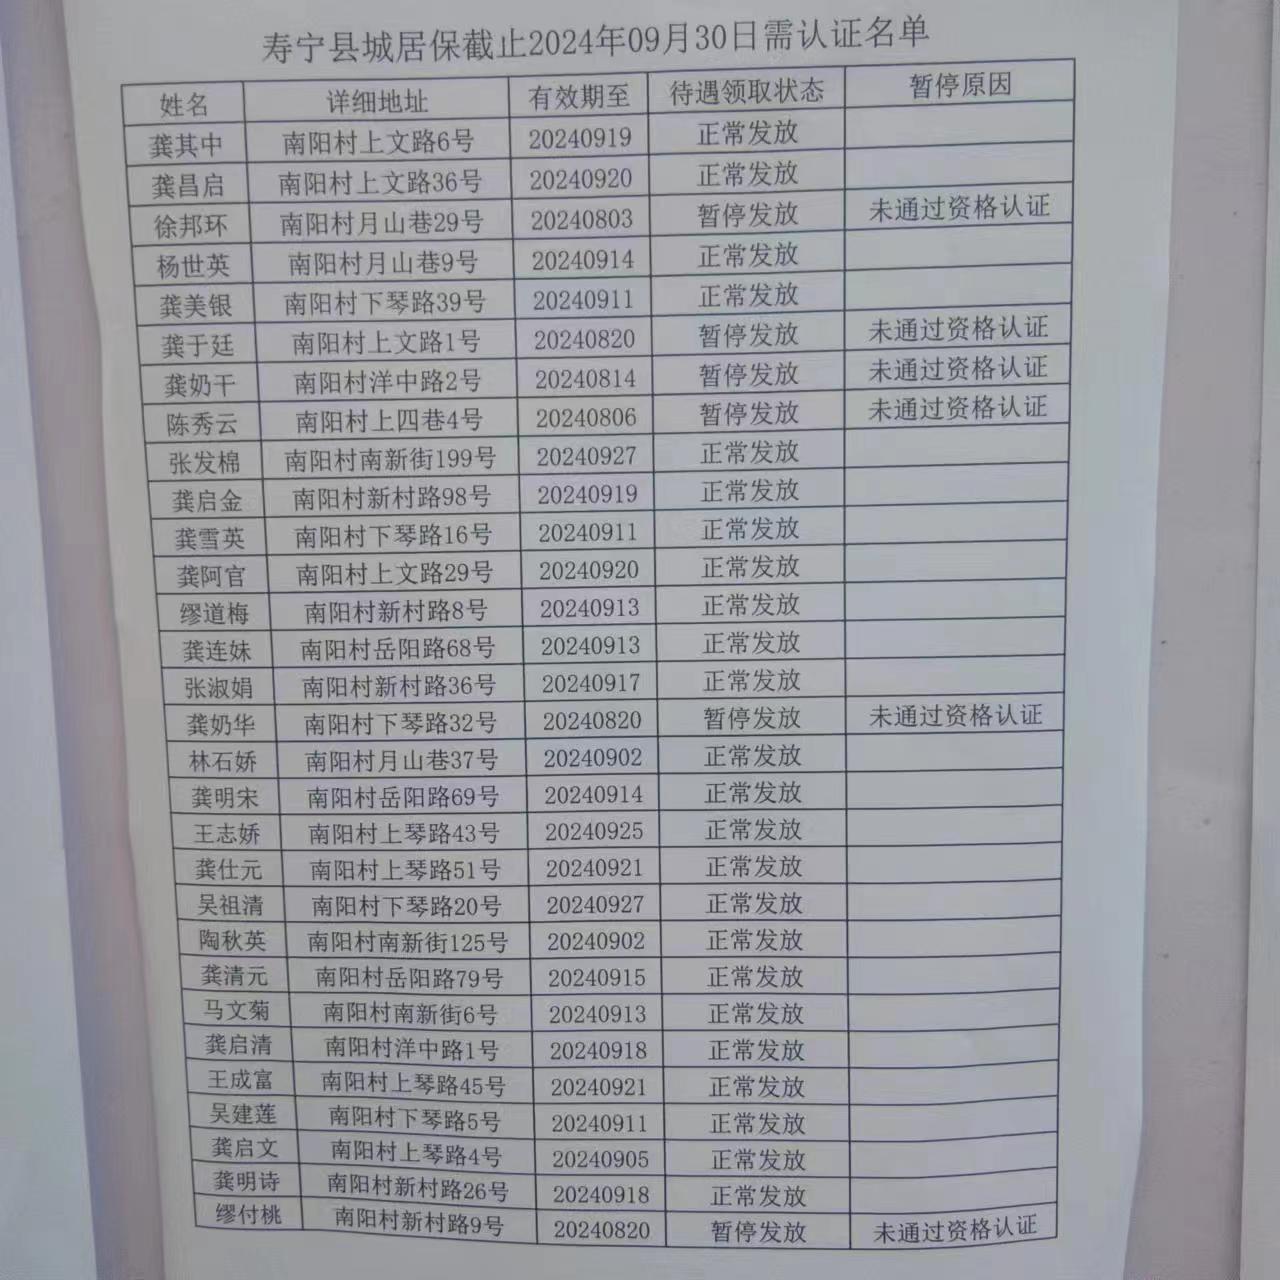 寿宁县城居保截止2024年09月30日需认证名单
姓名 详细地址 有效期至 待遇领取状态 暂停原因
龚其中 南阳村上文路6号 20240919 正常发放
龚昌启 南阳村上文路36号 20240920 正常发放
徐邦环 南阳村月山巷29号 20240803 暂停发放 未通过资格认证
杨世英 南阳村月山巷9号 20240914 正常发放
龚美银 南阳村下琴路39号 20240911 正常发放
龚于廷 南阳村上文路1号 20240820 暂停发放 未通过资格认证
龚奶干 南阳村洋中路2号 20240814 暂停发放 未通过资格认证
陈秀云 南阳村上四巷4号 20240806 暂停发放 未通过资格认证
张发棉 南阳村南新街199号 20240927 正常发放
龚启金 南阳村新村路98号 20240919 正常发放
龚雪英 南阳村下琴路16号 20240911 正常发放
龚阿官 南阳村上文路29号 20240920 正常发放
缪道梅 南阳村新村路8号 20240913 正常发放
龚连妹 南阳村岳阳路68号 20240913 正常发放
张淑娟 南阳村新村路36号 20240917 正常发放
龚奶华 南阳村下琴路32号 20240820 暂停发放 未通过资格认证
林石娇 南阳村月山巷37号 20240902 正常发放
龚明宋 南阳村岳阳路69号 20240914 正常发放
王志娇 南阳村上琴路43号 20240925 正常发放
龚仕元 南阳村上琴路51号 20240921 正常发放
吴祖清 南阳村下琴路20号 20240927 正常发放
陶秋英 南阳村南新街125号 20240902 正常发放
龚清元 南阳村岳阳路79号 20240915 正常发放
马文菊 南阳村南新街6号 20240913 正常发放
龚启清 南阳村洋中路1号 20240918 正常发放
王成富 南阳村上琴路45号 20240921 正常发放
吴建莲 南阳村下琴路5号 20240911 正常发放
龚启文 南阳村上琴路4号 20240905 正常发放
龚明诗 南阳村新村路26号 20240918 正常发放
缪付桃 南阳村新村路9号 20240820 暂停发放 未通过资格认证